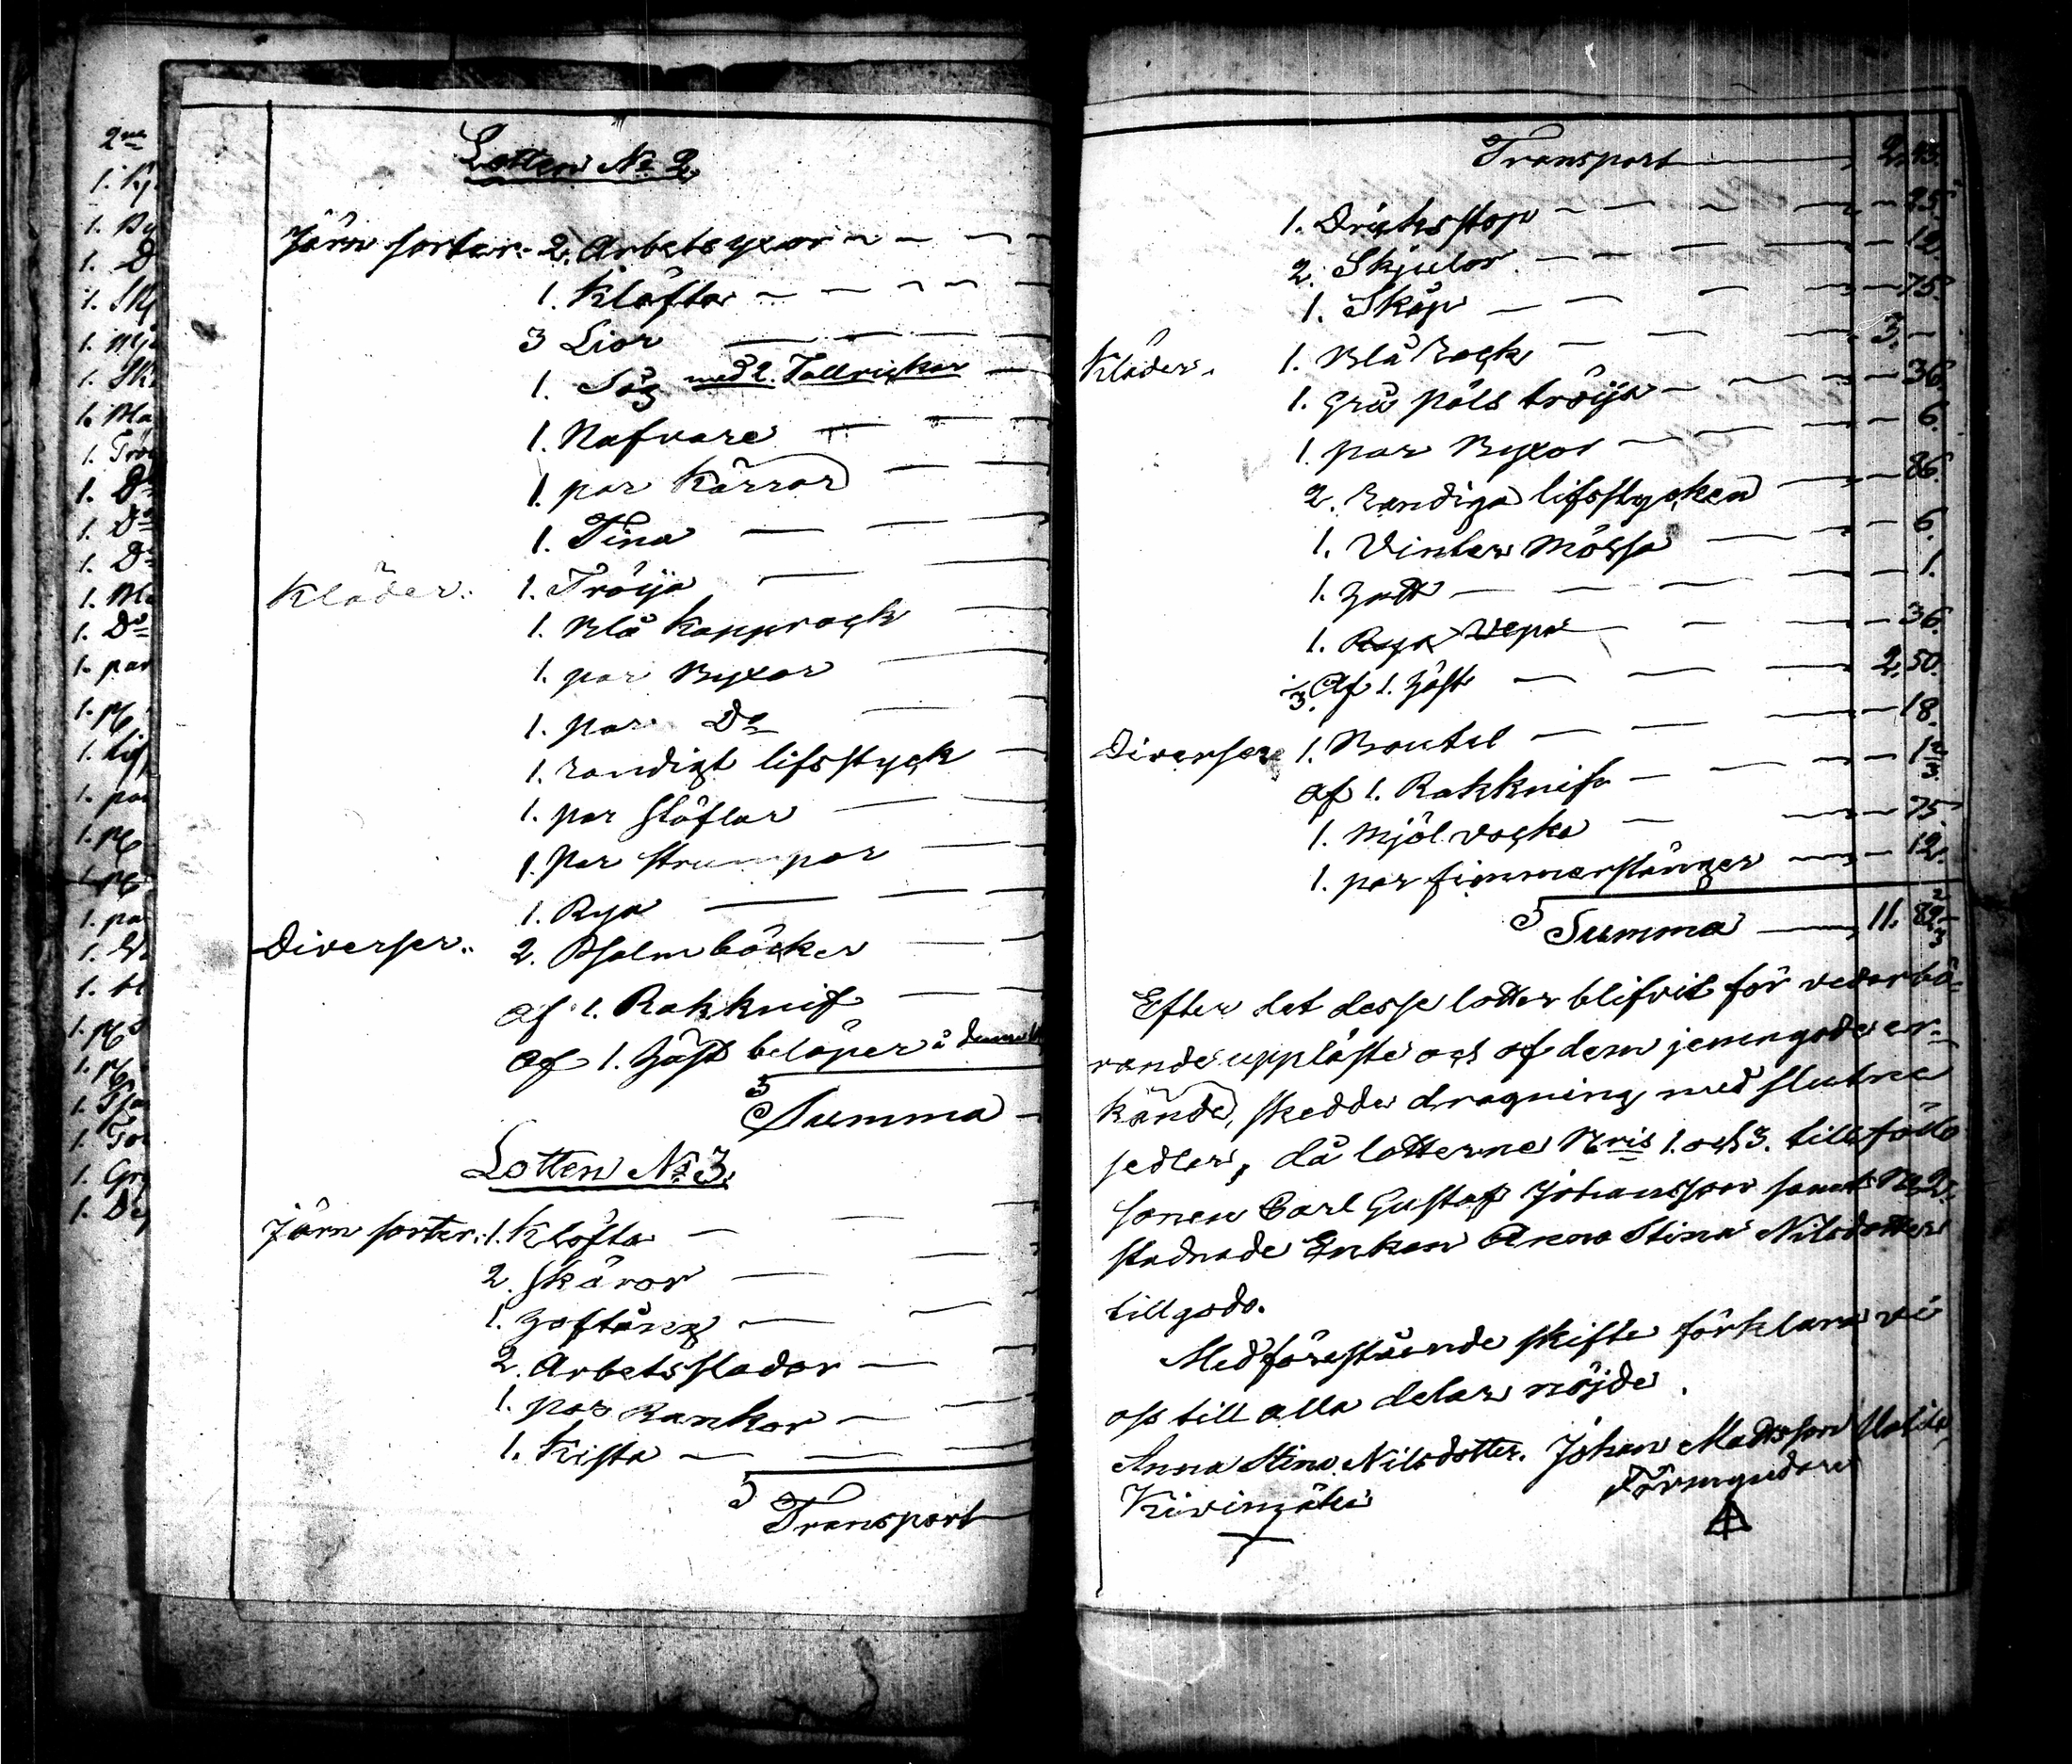 2
1. Kj
1. By
1. D
1. Skj
1. Mjö
1. Skr
1. Bla
1. Tröj
1. Do
1. Do
1. Do
1. Bla
1. Do
1. par
1. Lif
1. par
1. pa
1. Gry
Lotten No 2.
Järn sorter. 2. Arbets yxor
1. Klöfta
3 Lior
1. Såg med 2. Tallrickar
1. Nafvare
1. par Kärror
1. Tina
Kläder. 1. Tröija
1. Blå Kapprock
1. par Byxor
1. par Do
1. randigt lifsstyck
1. par stöflar
1. Par strumpor
1. Rya
Diverser. 2. Psalm böcker
af 1. Rakknif
af 1. häst belöper å denna
Summa
Lotten No 3.
Järn sorter. 1. Klöfta
2. skäror
1. Hoftång
2. Arbets slädar
1. par Bankor
1. Kista
Transport
Transport 2. 45.
1. Dricksstop 25.
2. Skjulor 12.
1. Skåp 75.
Kläder. 1. Blå Rock 3. –
1. Grå päls tröija 36.
1. par Byxor 6.
2. Randiga lifsstycken 86.
1. Vinter Mössa 6.
1. Hatt 1.
1. Rya Vepa 36.
1/3. Af 1. häst 2. 50.
Diverser 1. Boutel 18.
af 1. Rakknif 1 2/3.
1. Mjöl vacka 75.
1. par fimmerstänger 12.
Summa 11. 82 2/3
Efter det desse lotter blifvit för vederbö-
rande uppläste och af dem jemngode er-
kände, skedde dragning med slutne
sedlar, då lotterne Nris 1. och 3. tillföllo
sonen Carl Gustaf Johansson samt No 2.
stadnade Enkan Anna Stina Nilsdotter
tillgodo.
Med förestående skifte förklara vi
oss till alla delar nöjde.
Anna Stina Nilsdotter. Johan Mattsson
Kivimäki Förmyndare